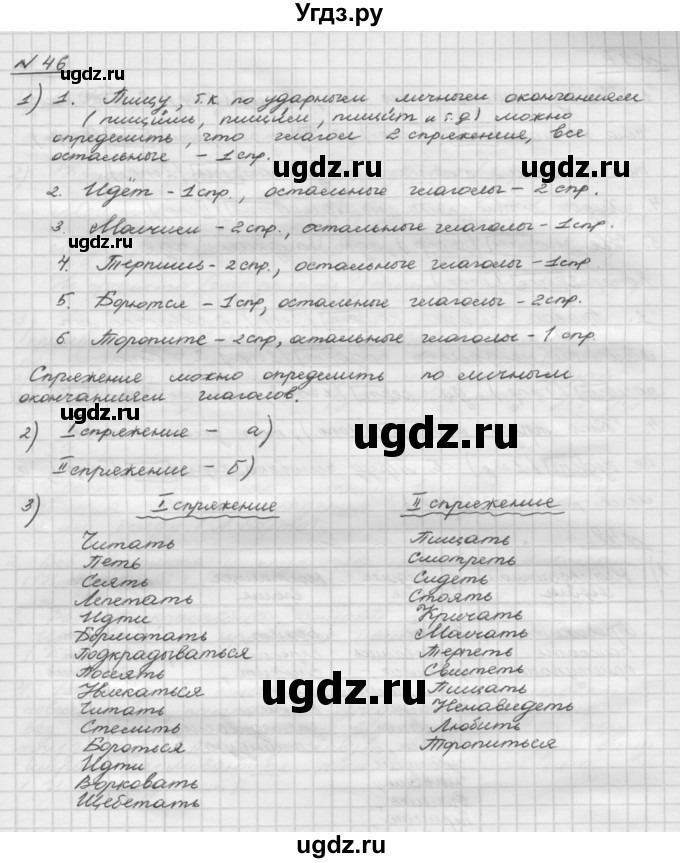 Угдз.ру
№ 46
1) 1. Пищу, т.к по ударным личным окончаниям
(пищишь, пищим, пищит и т.д) можно
определить, что глагол 2 спряжения, все
остальные - 1 спр.
2. Идёт - 1 спр., остальные глаголы - 2 спр.
3. Молчим - 2 спр., остальные глаголы - 1 спр.
4. Терпишь - 2 спр., остальные глаголы - 1 спр
5. Борются - 1 спр, остальные глаголы - 2 спр.
6 Торопите - 2 спр, остальные глаголы - 1 спр.
Спряжение можно определить по личным
окончаниям глаголов.
2) I спряжение - а)
II спряжение - б)
3) I спряжение
Читать
Петь
Сеять
Лепетать
Идти
Бормотать
Подкрадываться
Посеять
Увлекаться
Читать
Стелить
Бороться
Идти
Ворковать
Щебетать
II спряжение
Пищать
Смотреть
Сидеть
Стоять
Кричать
Молчать
Терпеть
Свистеть
Пищать
Ненавидеть
Любить
Торопиться
ugdz.ru
ugdz.ru
ugdz.ru
ugdz.ru
ugdz.ru
ugdz.ru
ugdz.ru
ugdz.ru
ugdz.ru
ugdz.ru
ugdz.ru